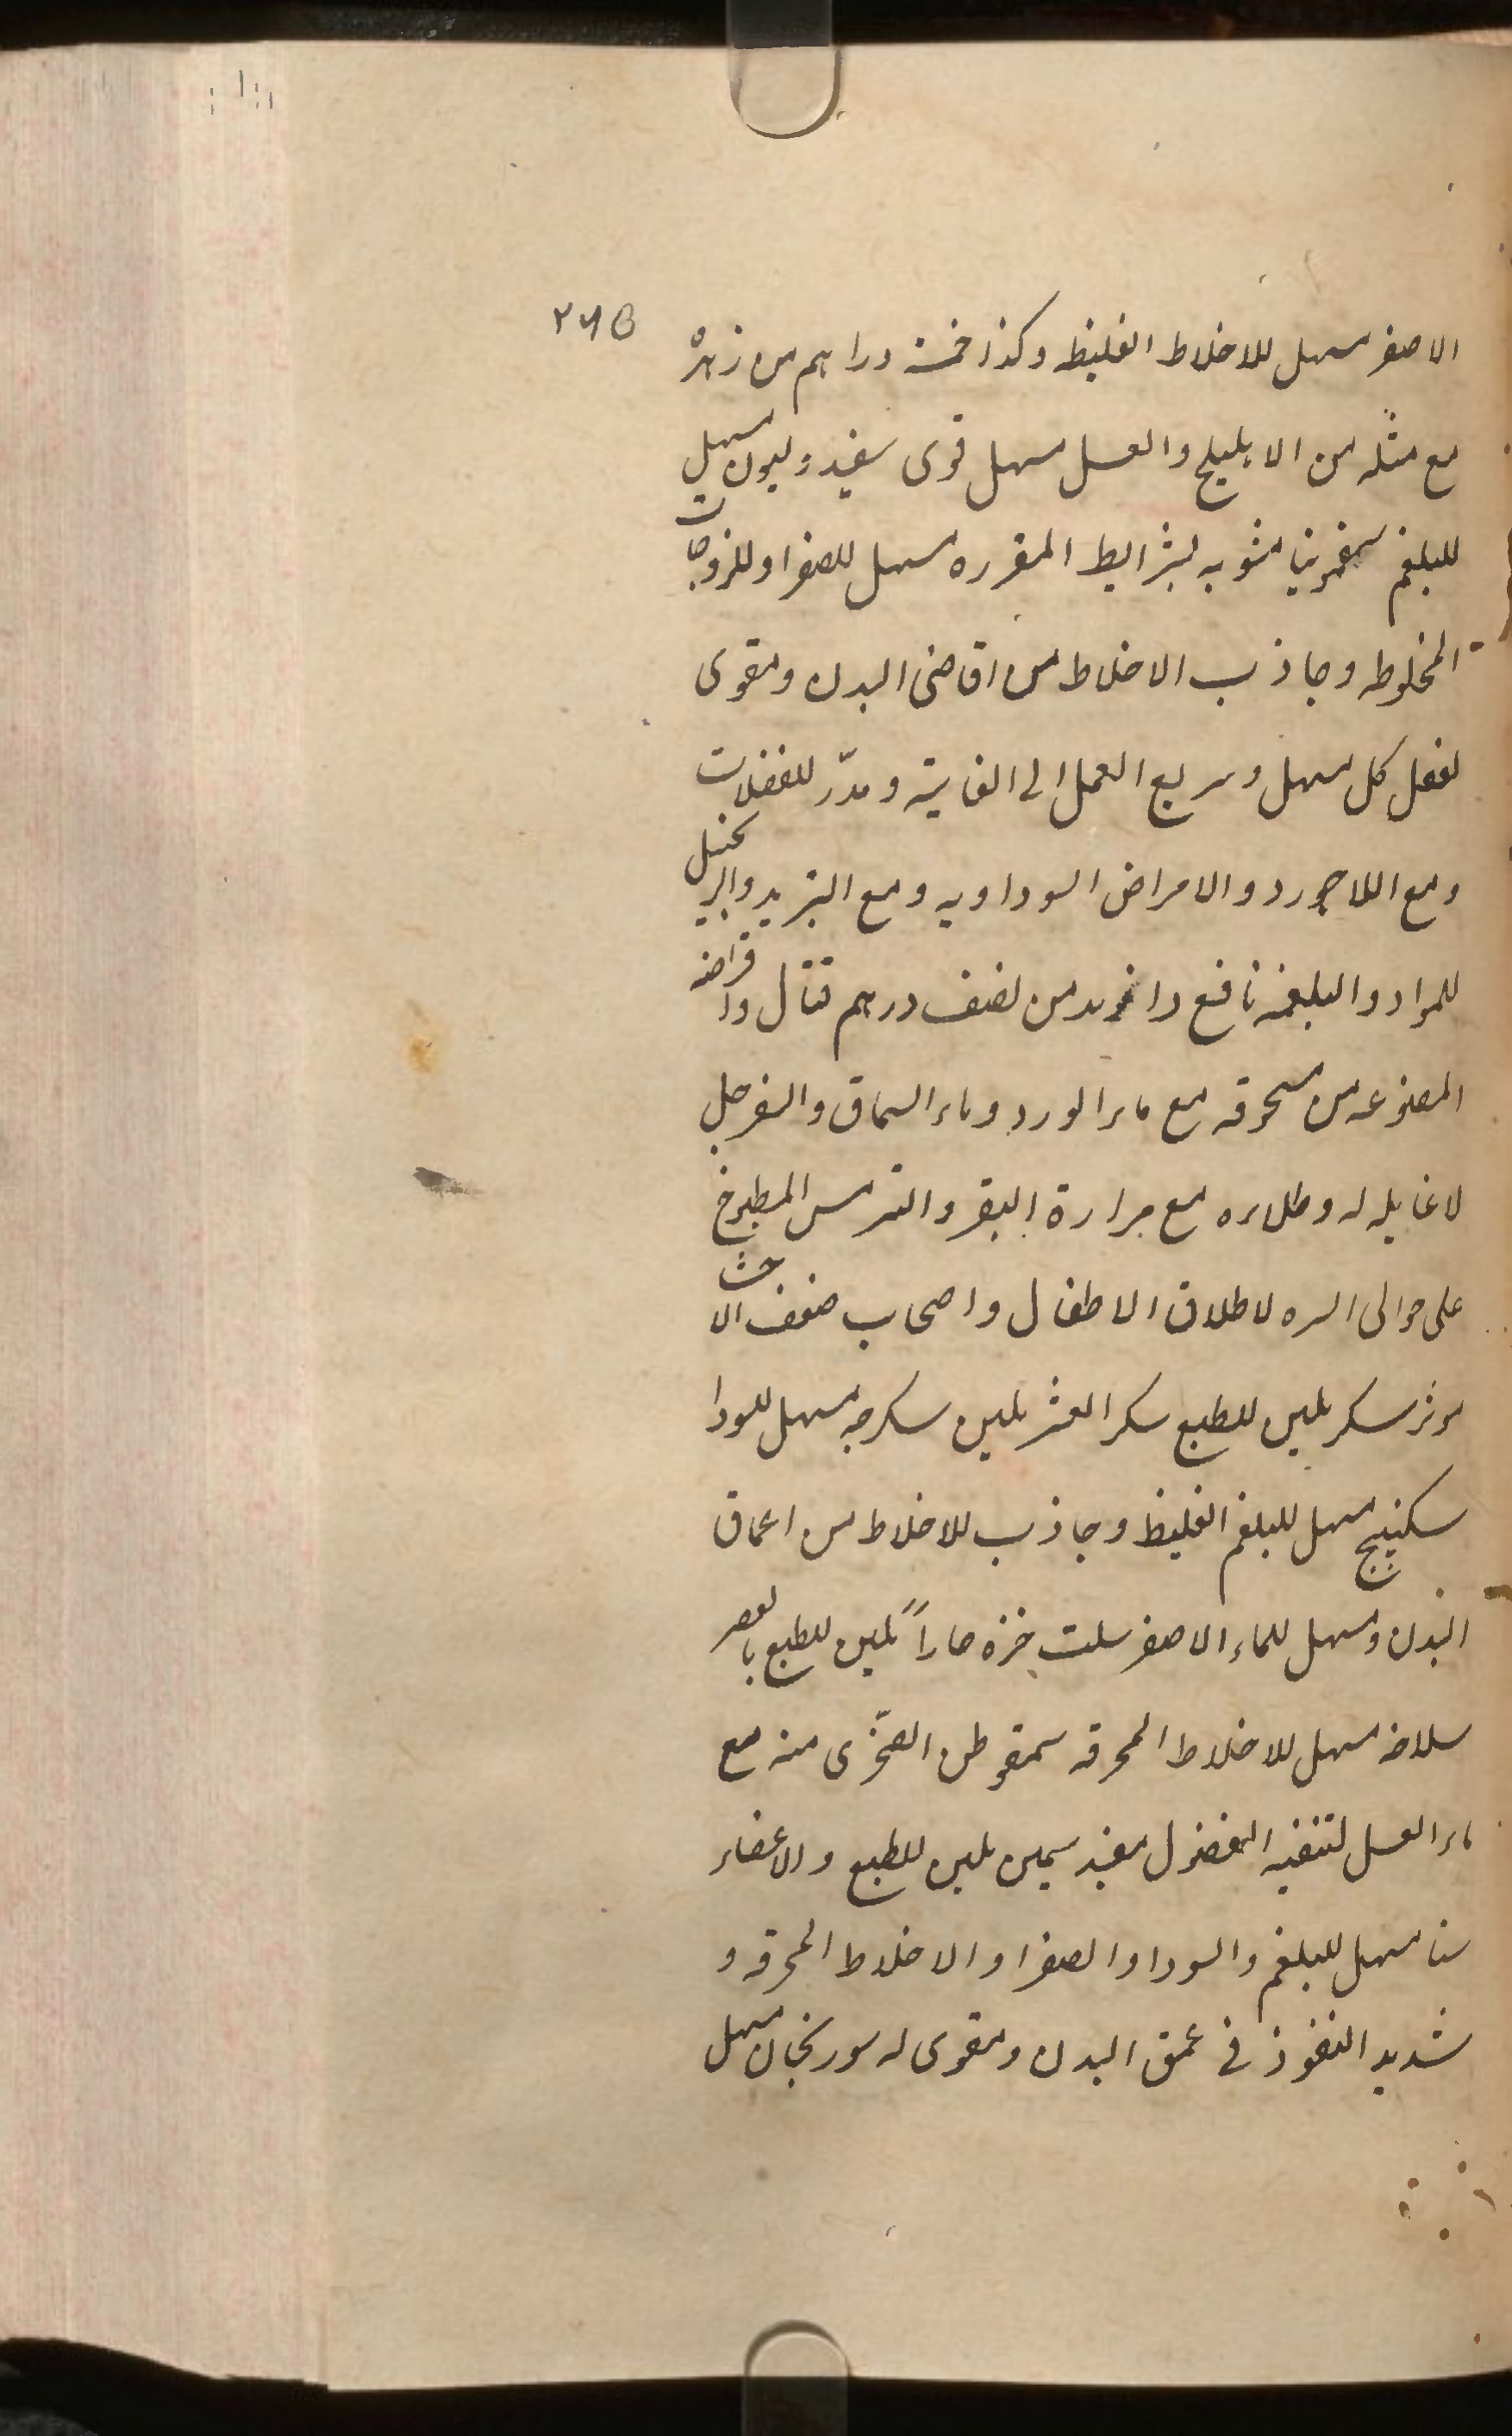 ٢٧٥
الاصفر مسهل للاخلاط الغليظه وكذا خمسة دراهم من زهرْ
مع مثله من الاهليلج والعسل مسهل قوى سفيد وليون مسهل
للبلغم سقمونيا مشويه بشرايط المقرره مسهل للصفرا وللزوجات
المخلوطه وجاذب الاخلاط من اقاصى البدن ومقوى
لفعل كل مسهل وسريع العمل الى الغاية ومدرّ للفضلات
ومع اللاجورد والامراض السوداويه ومع التربد والزنجبيل
للمواد البلغميه نافع وازيد من نصف درهم قتال واقراصه
المصنوعه من مسحوقه مع ماء الورد وماء السماق والسفرجل
لا غايله له وطلاءه مع مرارة البقر والترمس المطبوخ
على حوالى السره لاطلاق الاطفال واصحاب ضعف الاحشا
موثر سكر ملين للطبع سكر العشر ملين سكرجه مسهل للسودا
سكبينج مسهل للبلغم الغليظ وجاذب للاخلاط من اعماق
البدن ومسهل للماء الاصفر سلت خبزه حاراً ملين للطبع بالعصر
سلاخه مسهل للاخلاط المحرقه سمقوطن الصخرى منه مع
ماء العسل لتنقيه الفضول مفيد سمين ملين للطبع والاعضاء
سنا مسهل للبلغم والسودا والصفرا والاخلاط المحرقه و
شديد النفوذ في عمق البدن ومقوى له سورنجان مسهل